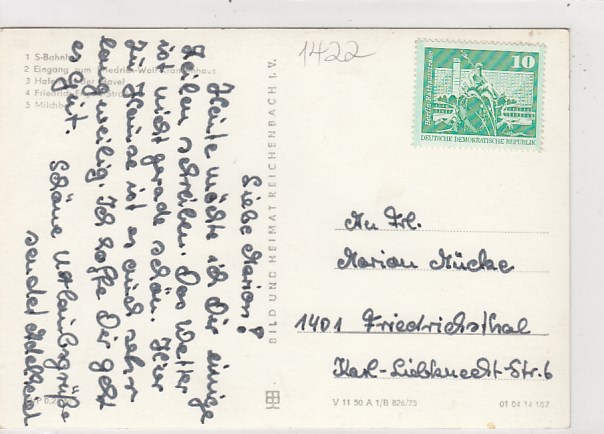 1 S-Bahnhof
2 Eingang zum Friedrich-Wolf-Krankenhaus
3 Hafen der Havel
4 Friedrich-Engels-Str
5 Milchb
1422
10
Berlin Rathausstraße
DEUTSCHE DEMOKRATISCHE REPUBLIK
Liebe Marion!
Heute möchte ich Dir einige
Zeilen schreiben. Das Wetter
ist nicht gerade schön. Hier
zu Hause ist es auch sehr
langweilig. Ich hoffe Dir geht
es gut.
Schöne Urlaubsgrüße
sendet Adelheid
BILD UND HEIMAT REICHENBACH i. V.
An Frl.
Marion Mücke
1401 Friedrichsthal
Karl-Liebknecht-Str. 6
V 11 50 A 1/B 826/75
01 04 14 167